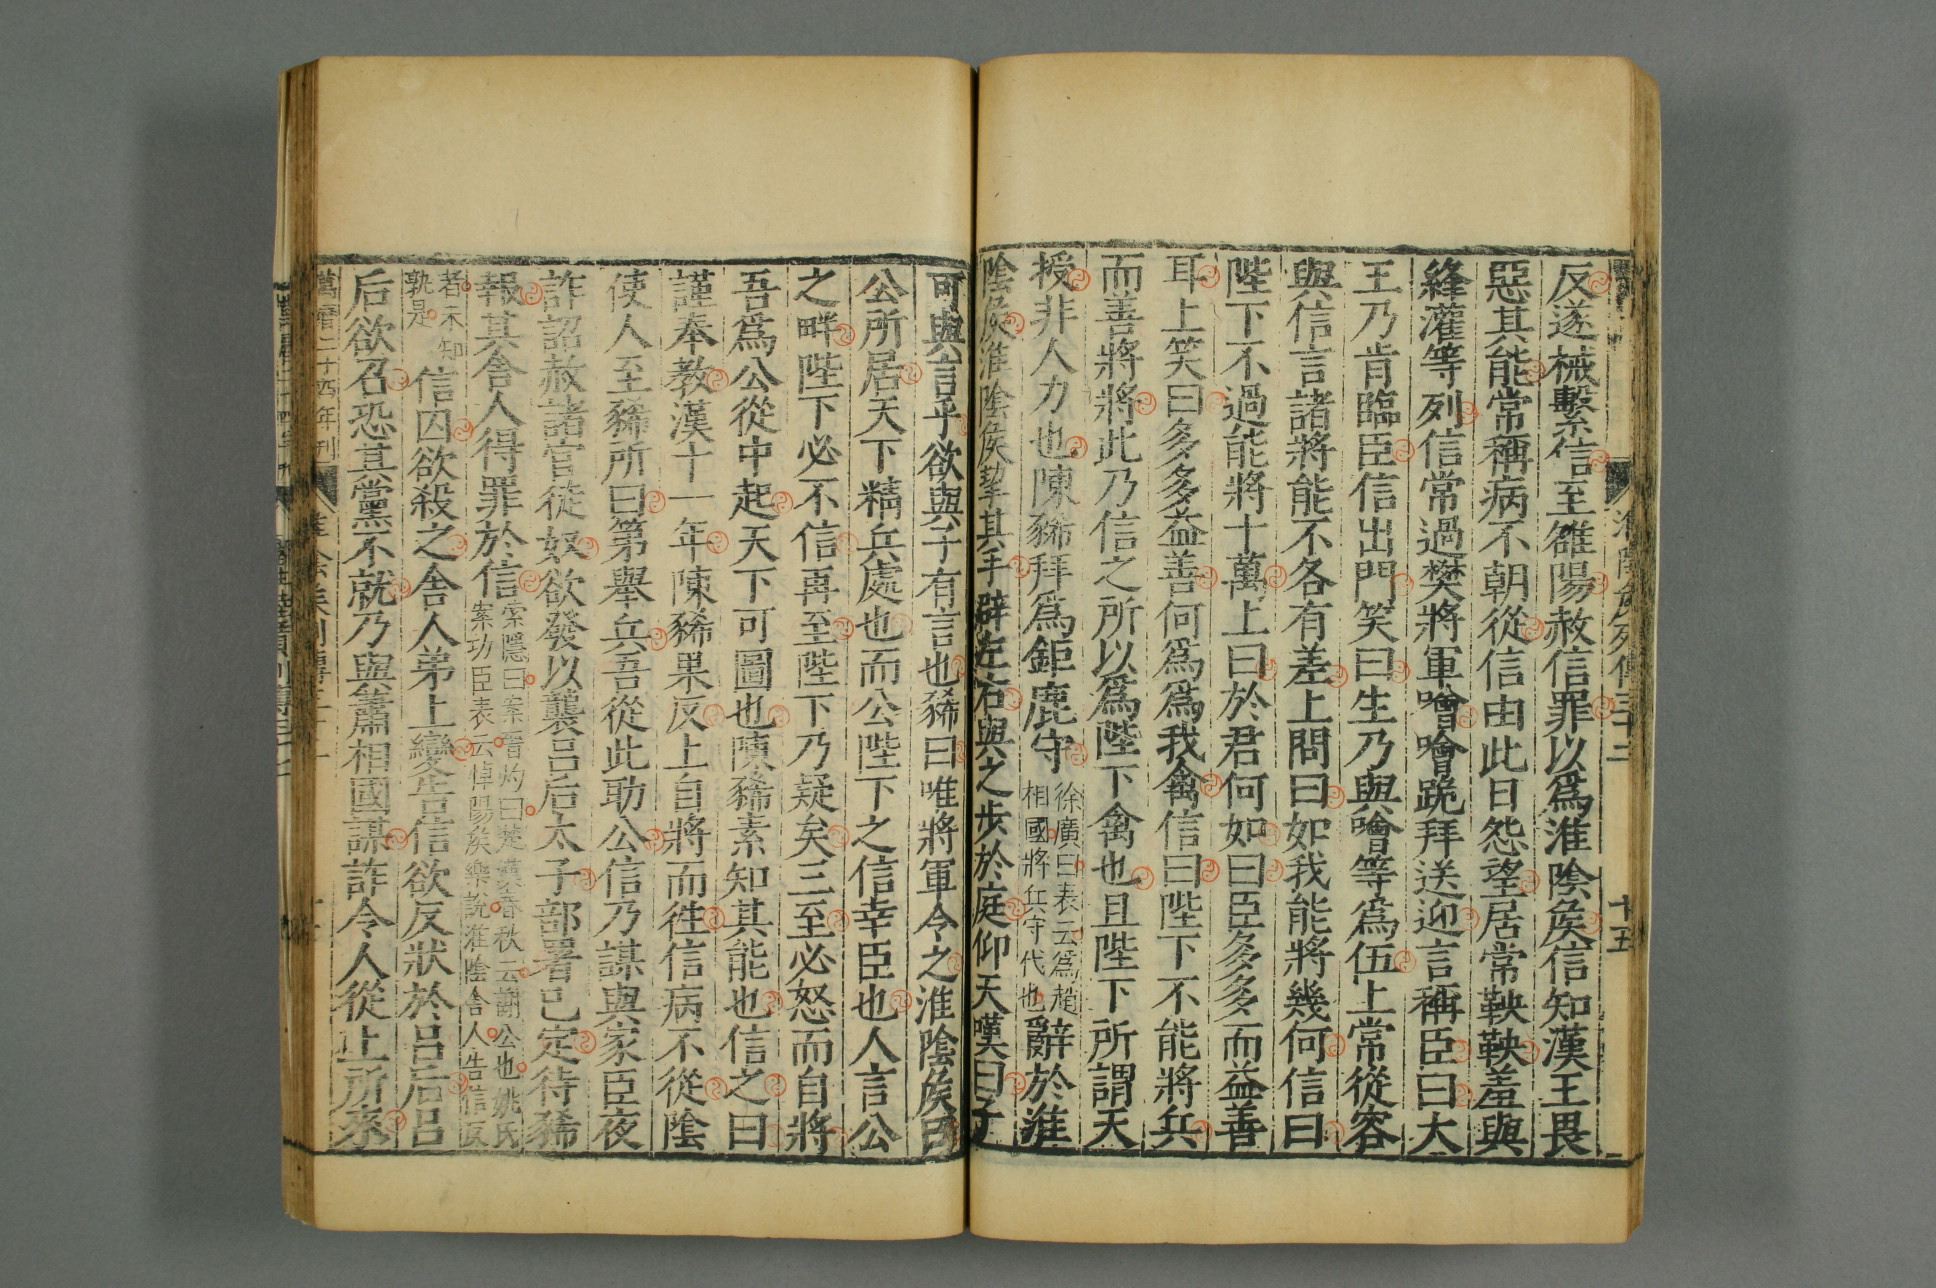 淮陰侯列傳三十二
十五
反遂械繫信至雒陽赦信罪以爲淮陰侯信知漢王畏
惡其能常稱病不朝從信由此日怨望居常鞅鞅羞與
絳灌等列信常過樊將軍噲噲跪拜送迎言稱臣曰大
王乃肯臨臣信出門笑曰生乃與噲等爲伍上常從容
與信言諸將能不各有差上問曰如我能將幾何信曰
陛下不過能將十萬上曰於君何如曰臣多多而益善
耳上笑曰多多益善何爲爲我禽信曰陛下不能將兵
而善將將此乃信之所以爲陛下禽也且陛下所謂天
授非人力也陳豨拜爲鉅鹿守
徐廣曰表云爲趙
相國將兵守代也
辭於淮
陰侯淮陰侯挈其手辟左右與之步於庭仰天嘆曰子
可與言乎欲與子有言也豨曰唯將軍令之淮陰侯曰
公所居天下精兵處也而公陛下之信幸臣也人言公
之畔陛下必不信再至陛下乃疑矣三至必怒而自將
吾爲公從中起天下可圖也陳豨素知其能也信之曰
謹奉教漢十一年陳豨果反上自將而往信病不從陰
使人至豨所曰第舉兵吾從此助公信乃謀與家臣夜
詐詔赦諸官徒奴欲發以襲呂后太子部署已定待豨
報其舍人得罪於信
索隱曰案晉灼曰楚漢春秋云謝公也姚氏
案功臣表云愼陽侯樂說淮陰舍人告信反
者未知
孰是
信囚欲殺之舍人弟上變告信欲反狀於呂后呂
后欲召恐其黨不就乃與蕭相國謀詐令人從上所來
萬曆二十四年刊
淮陰侯列傳三十二